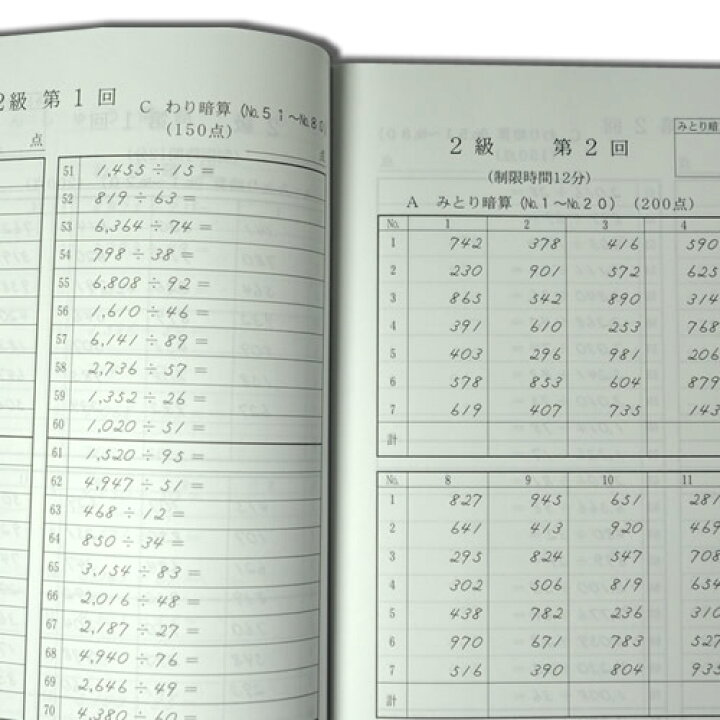 2級 第1回 C わり暗算 (№51～№80)
(150点)
点 点
51 1,455 ÷ 15 =
52 819 ÷ 63 =
53 6,364 ÷ 74 =
54 798 ÷ 38 =
55 6,808 ÷ 92 =
56 1,610 ÷ 46 =
57 6,141 ÷ 89 =
58 2,736 ÷ 57 =
59 1,352 ÷ 26 =
60 1,020 ÷ 51 =
61 1,520 ÷ 95 =
62 4,947 ÷ 51 =
63 468 ÷ 12 =
64 850 ÷ 34 =
65 3,154 ÷ 83 =
66 2,016 ÷ 48 =
67 2,187 ÷ 27 =
68 4,940 ÷ 76 =
69 2,646 ÷ 49 =
70 4,380 ÷ 60 =
みとり暗
2級 第2回
(制限時間12分)
A みとり暗算 (№1～№20) (200点)
№ 1 2 3 4
1 742 378 416 590
2 230 901 572 625
3 865 542 890 314
4 391 610 253 768
5 403 296 981 206
6 578 853 604 879
7 619 407 735 143
計
№ 8 9 10 11
1 827 945 651 281
2 641 413 920 469
3 295 824 547 708
4 302 506 819 654
5 438 782 236 310
6 970 671 783 527
7 516 390 804 935
計